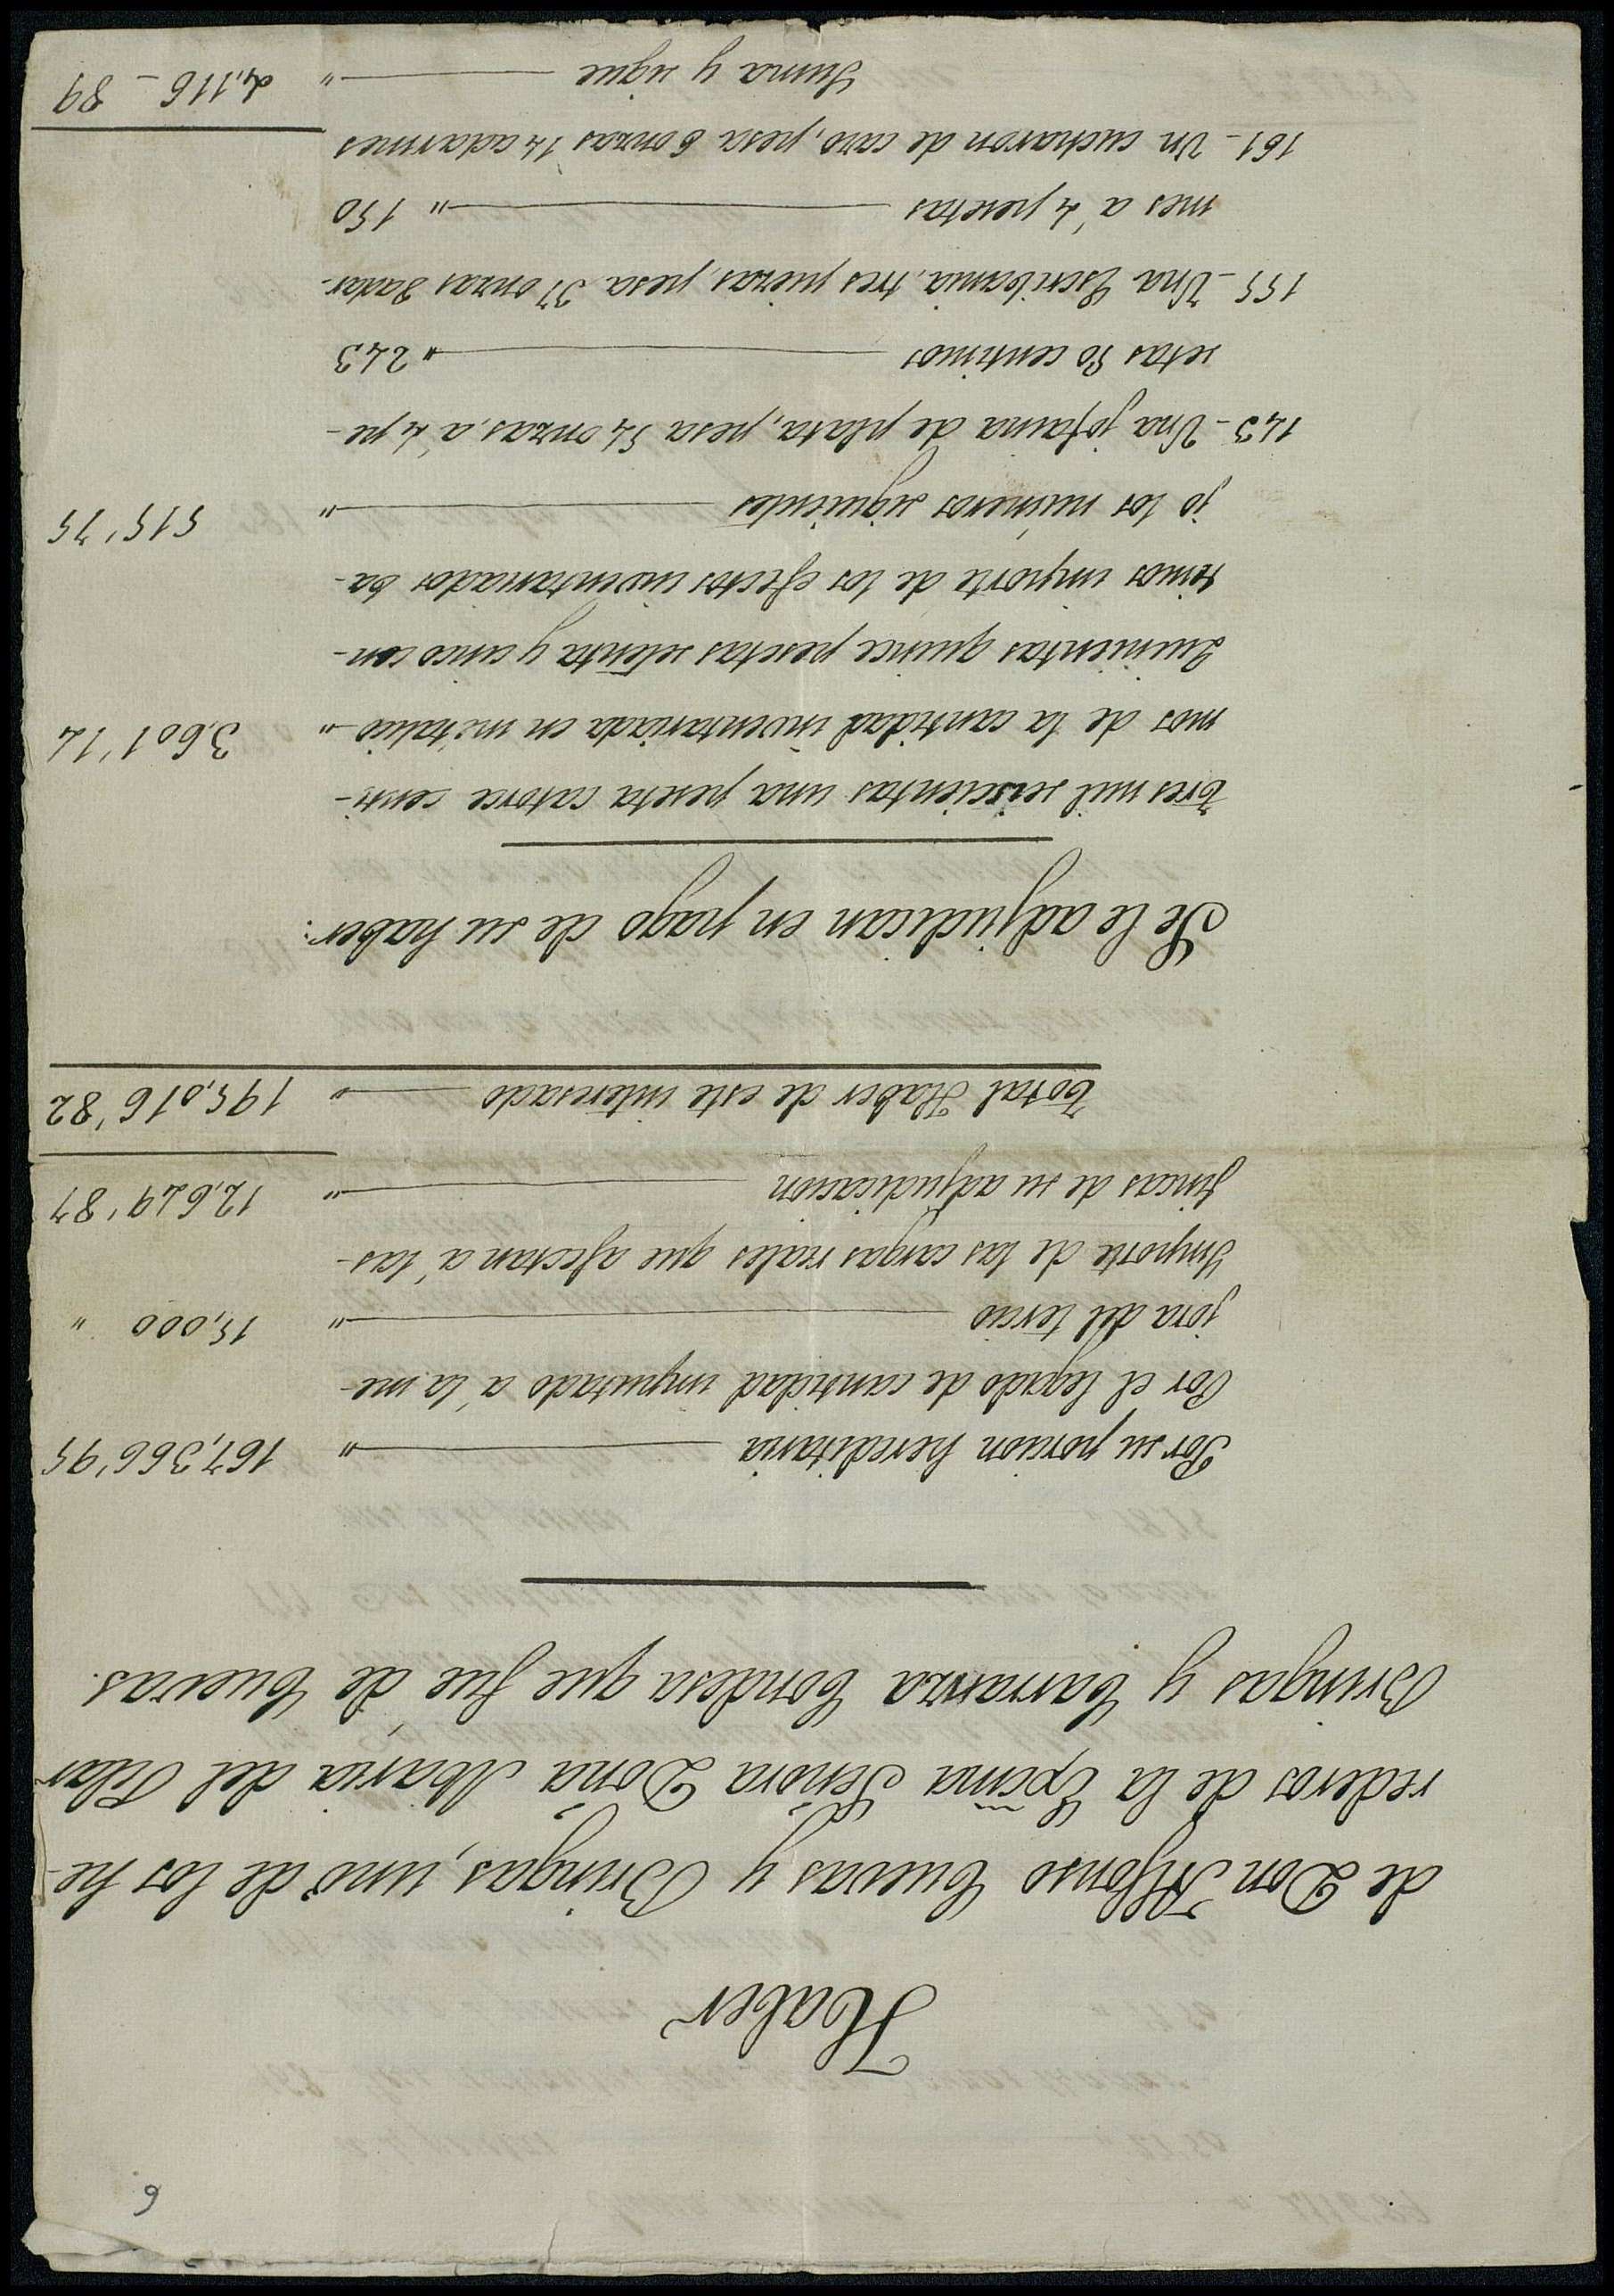 9
Haber
de Don Alfonso Cuevas y Bringas, uno de los he-
rederos de la Excma Señora Doña Maria del Pilar
Bringas y Carranza Condesa que fue de Cuevas.
Por su porcion hereditaria " 167,366'95
Por el legado de cantidad imputado á la me-
jora del tercio " 15,000 "
Importe de las cargas reales que afectan á las
fincas de su adjudicacion " 12,649'87
Total Haber de este interesado " 195,016'82
Se le adjudican en pago de su haber:
Tres mil seiscientas una peseta catorce centi-
mos de la cantidad inventariada en metalico " 3,601'14
Quinientas quince pesetas setenta y cinco cen-
timos importe de los efectos inventariados ba-
jo los números siguientes " 515'75
143 - Una jofaina de plata, pesa 54 onzas, á 4 pe-
setas 50 centimos " 243
155 - Una Escribania, tres piezas, pesa 37 onzas 8 adar-
mes á 4 pesetas " 150
161 - Un cucharon de cazo, pesa 6 onzas 14 adarmes
Suma y sigue " 4,116 - 89